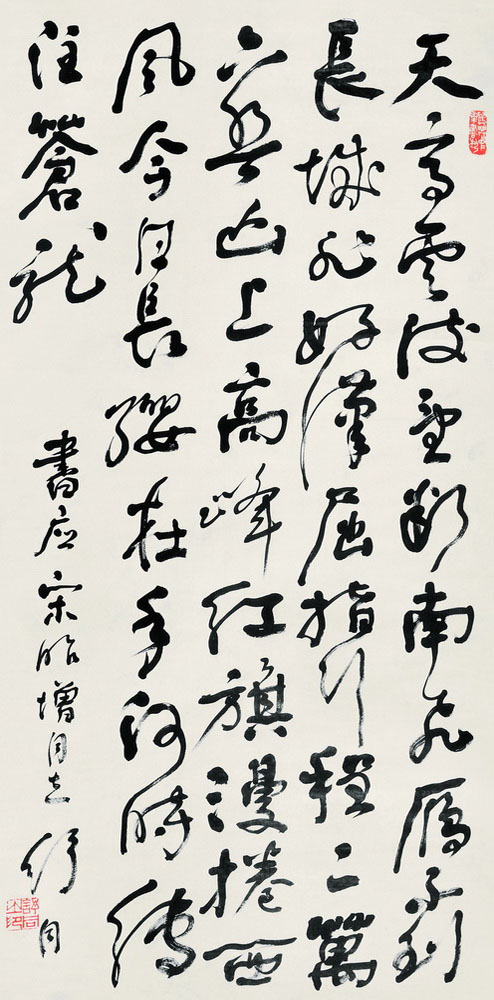 天高雲淡望斷南飛雁不到
長城非好漢屈指行程二萬
六盤山上高峰紅旗漫捲西
風今日長纓在手何時縛
住蒼龍
書应宋昭增同志 舒同